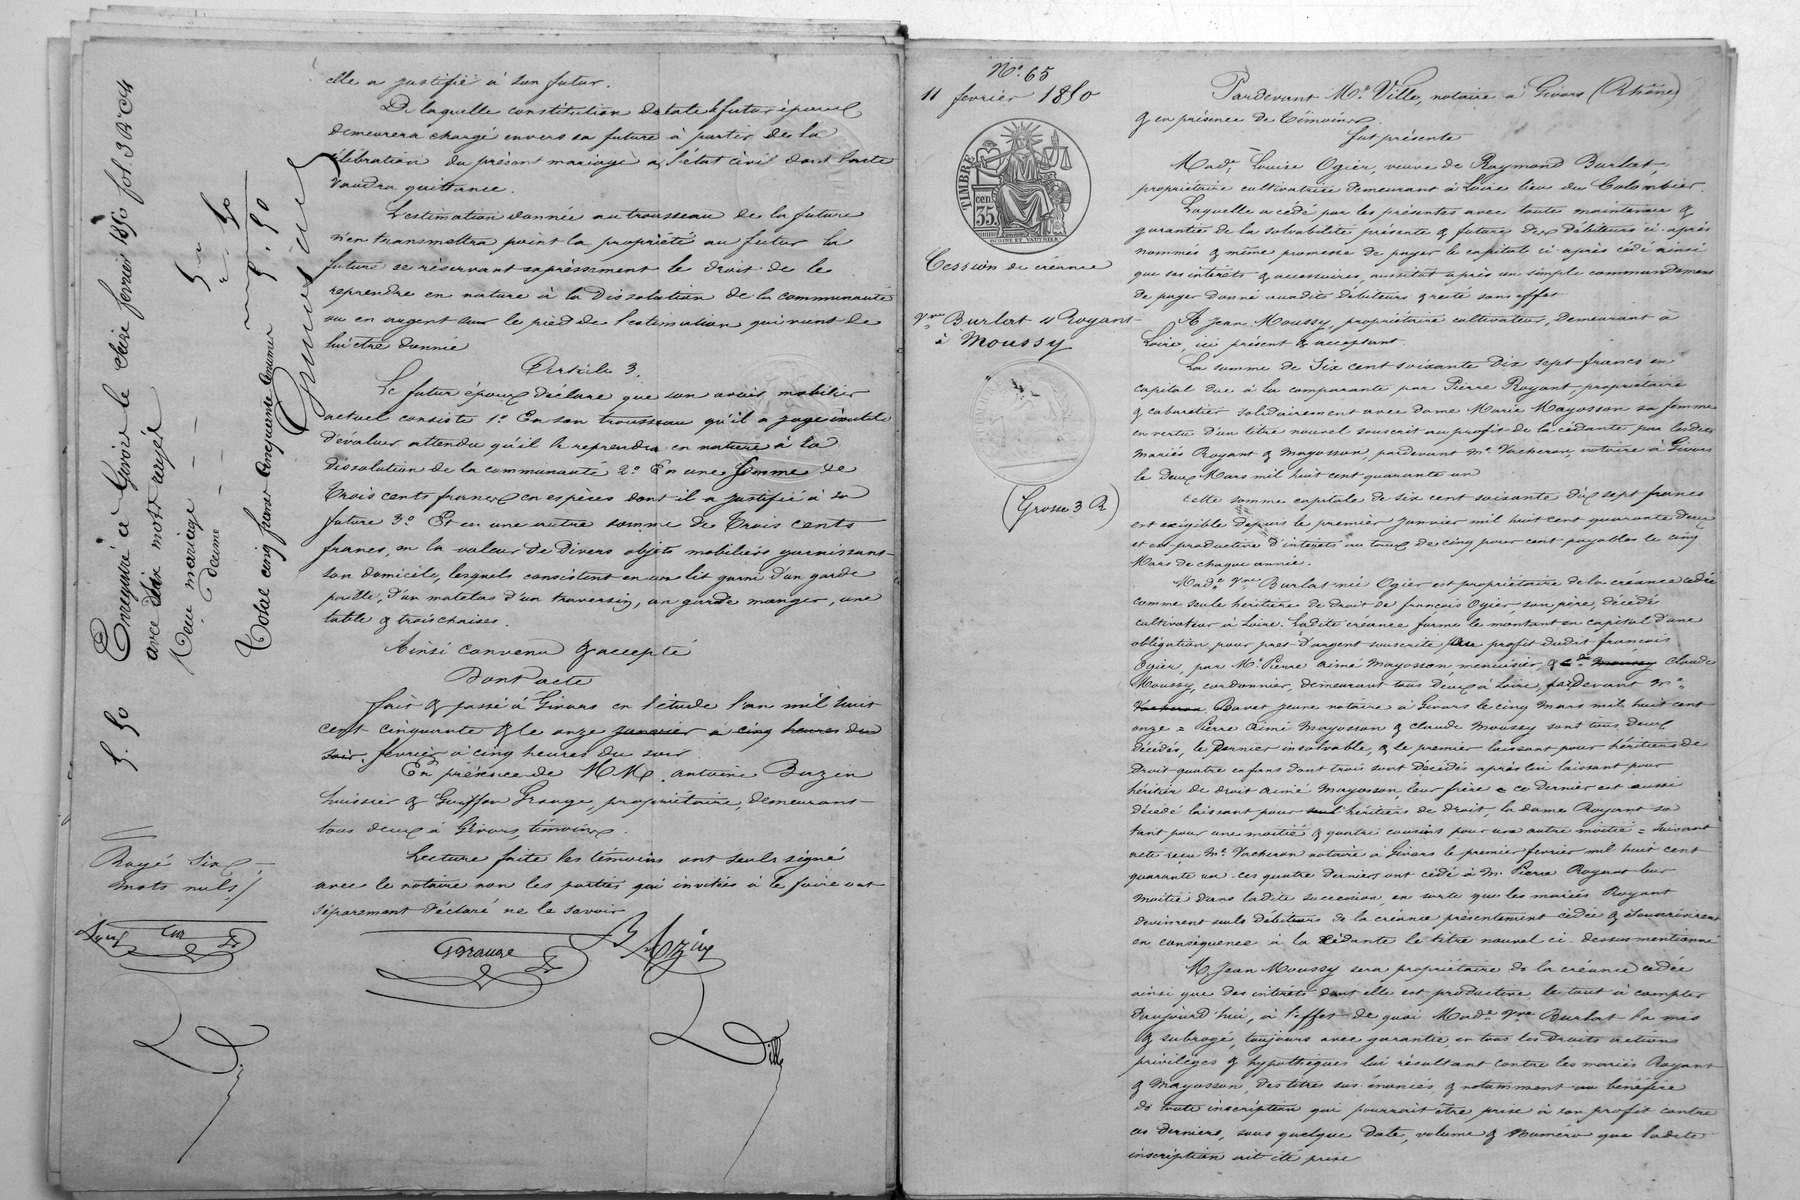 elle a justifié à son futur.
De laquelle constitution dotale le futur époux
demeurera chargé envers sa future à partir de la
célébration du présent mariage à l'état civil dont l'acte
vaudra quittance.
L'estimation donnée au trousseau de la future
n'en transmettra point la propriété au futur la
future se réservant expressément le droit de le
reprendre en nature à la dissolution de la communauté
ou en argent sur le pied de l'estimation qui vient de
lui être donnée
Article 3.
Le futur époux déclare que son avoir mobilier
actuel consiste 1º En son trousseau qu'il a jugé inutile
d'évaluer attendu qu'il le reprendra en nature à la
dissolution de la communauté 2º En une somme de
Trois cents francs en espèces dont il a justifié à sa
future 3º Et en une autre somme de Trois cents
francs, en la valeur de divers objets mobiliers garnissant
son domicile, lesquels consistent en un lit garni d'un garde
paille, d'un matelas d'un traversin, un garde manger, une
table & trois chaises.
Ainsi convenu & accepté
Dont acte
fait & passé à Givors en l'étude l'an mil huit
cent cinquante & le onze janvier à cinq heures du
soir. février à cinq heures du soir
En présence de MM. Antoine Bazin
huissier & Goiffon Grange, propriétaire, demeurant
tous deux à Givors, témoins.
Lecture faite les témoins ont seuls signé
avec le notaire non les parties qui invitées à le faire ont
séparément déclaré ne le savoir
Grange
Bazin
Ville
Rayé six
mots nuls
Enregistré à Givors le seize février 1850 fol. 3 Rº C4
avec dix mots rayés
Reçu mariage 5 "
Décime " 50
5. 50
Total cinq francs cinquante centimes
5. 50
Nº 65
11 février 1850
TIMBRE
35 cen
OUDINE ET VAUTHIER
Cession de créance
Vve Burlat & Royant
à Moussy
(Grosse 3 R)
Pardevant Me Ville, notaire à Givors (Rhône)
& en présence de témoins.
fut présente
Made Louise Ogier, veuve de Raymond Burlat,
propriétaire cultivatrice demeurant à Loire lieu du Colombier.
Laquelle a cédé par les présentes avec toute maintenue &
garantie de la solvabilité présente & future des débiteurs ci-après
nommés & même promesse de payer le capital ci après cédé ainsi
que ses intérêts & accessoires, aussitôt après un simple commandement
de payer donné auxdits débiteurs & resté sans effet
A Jean Moussy, propriétaire cultivateur, demeurant à
Loire, ici présent & acceptant
La somme de Six cent soixante dix sept francs en
capital due à la comparante par Pierre Royant propriétaire
& cabaretier solidairement avec dame Marie Mayosson sa femme
en vertu d'un titre nouvel souscrit au profit de la cédante par lesdits
mariés Royant & Mayosson, pardevant Me Vacheron, notaire à Givors
le deux Mars mil huit cent quarante un
Cette somme capitale de six cent soixante dix sept francs
est exigible depuis le premier janvier mil huit cent quarante deux
et est productive d'intérêts au taux de cinq pour cent payables le cinq
Mars de chaque année.
Made Vve Burlat née Ogier est propriétaire de la créance cédée
comme seule héritière de droit de françois Ogier son père, décédé
cultivateur à Loire. Ladite créance forme le montant en capital d'une
obligation pour prêt d'argent souscrite au profit dudit françois
Ogier, par Mr Pierre Aimé Mayosson menuisier, & Moussy Claude
Moussy, cordonnier, demeurant tous deux à Loire, pardevant Me
Vacheron Bavet jeune notaire à Givors le cinq Mars mil huit cent
onze = Pierre Aimé Mayosson & Claude Moussy sont tous deux
décédés, le dernier insolvable, & le premier laissant pour héritiers de
droit quatre enfans dont trois sont décédés après lui laissant pour
héritier de droit Aimé Mayosson, leur frère & ce dernier est aussi
décédé laissant pour seul héritiers de droit, la dame Royant sa
tant pour une moitié & quatre cousins pour une autre moitié = Suivant
acte reçu Me Vacheron notaire à Givors le premier fevrier mil huit cent
quarante un. ces quatre derniers ont cédé à Mr Pierre Royant leur
moitié dans ladite succession, en sorte que les mariés Royant
devinrent seuls débiteurs de la créance présentement cédée & souscrivirent
en conséquence à la cédante le titre nouvel ci-dessus mentionné
M. Jean Moussy sera propriétaire de la créance cédée
ainsi que des intérêts dont elle est productive, le tout à compter
d'aujourd'hui, à l'effet de quoi Made Vve Burlat l'a mis
& subrogé, toujours avec garantie, en tous les droits actions
privilèges & hypothèques lui résultant contre les mariés Royant
& Mayosson, des titres sus-énoncés, & notamment au bénéfice
de toute inscription qui pourrait être prise à son profit contre
ces derniers, sous quelque date, volume & numéro que ladite
inscription ait été prise